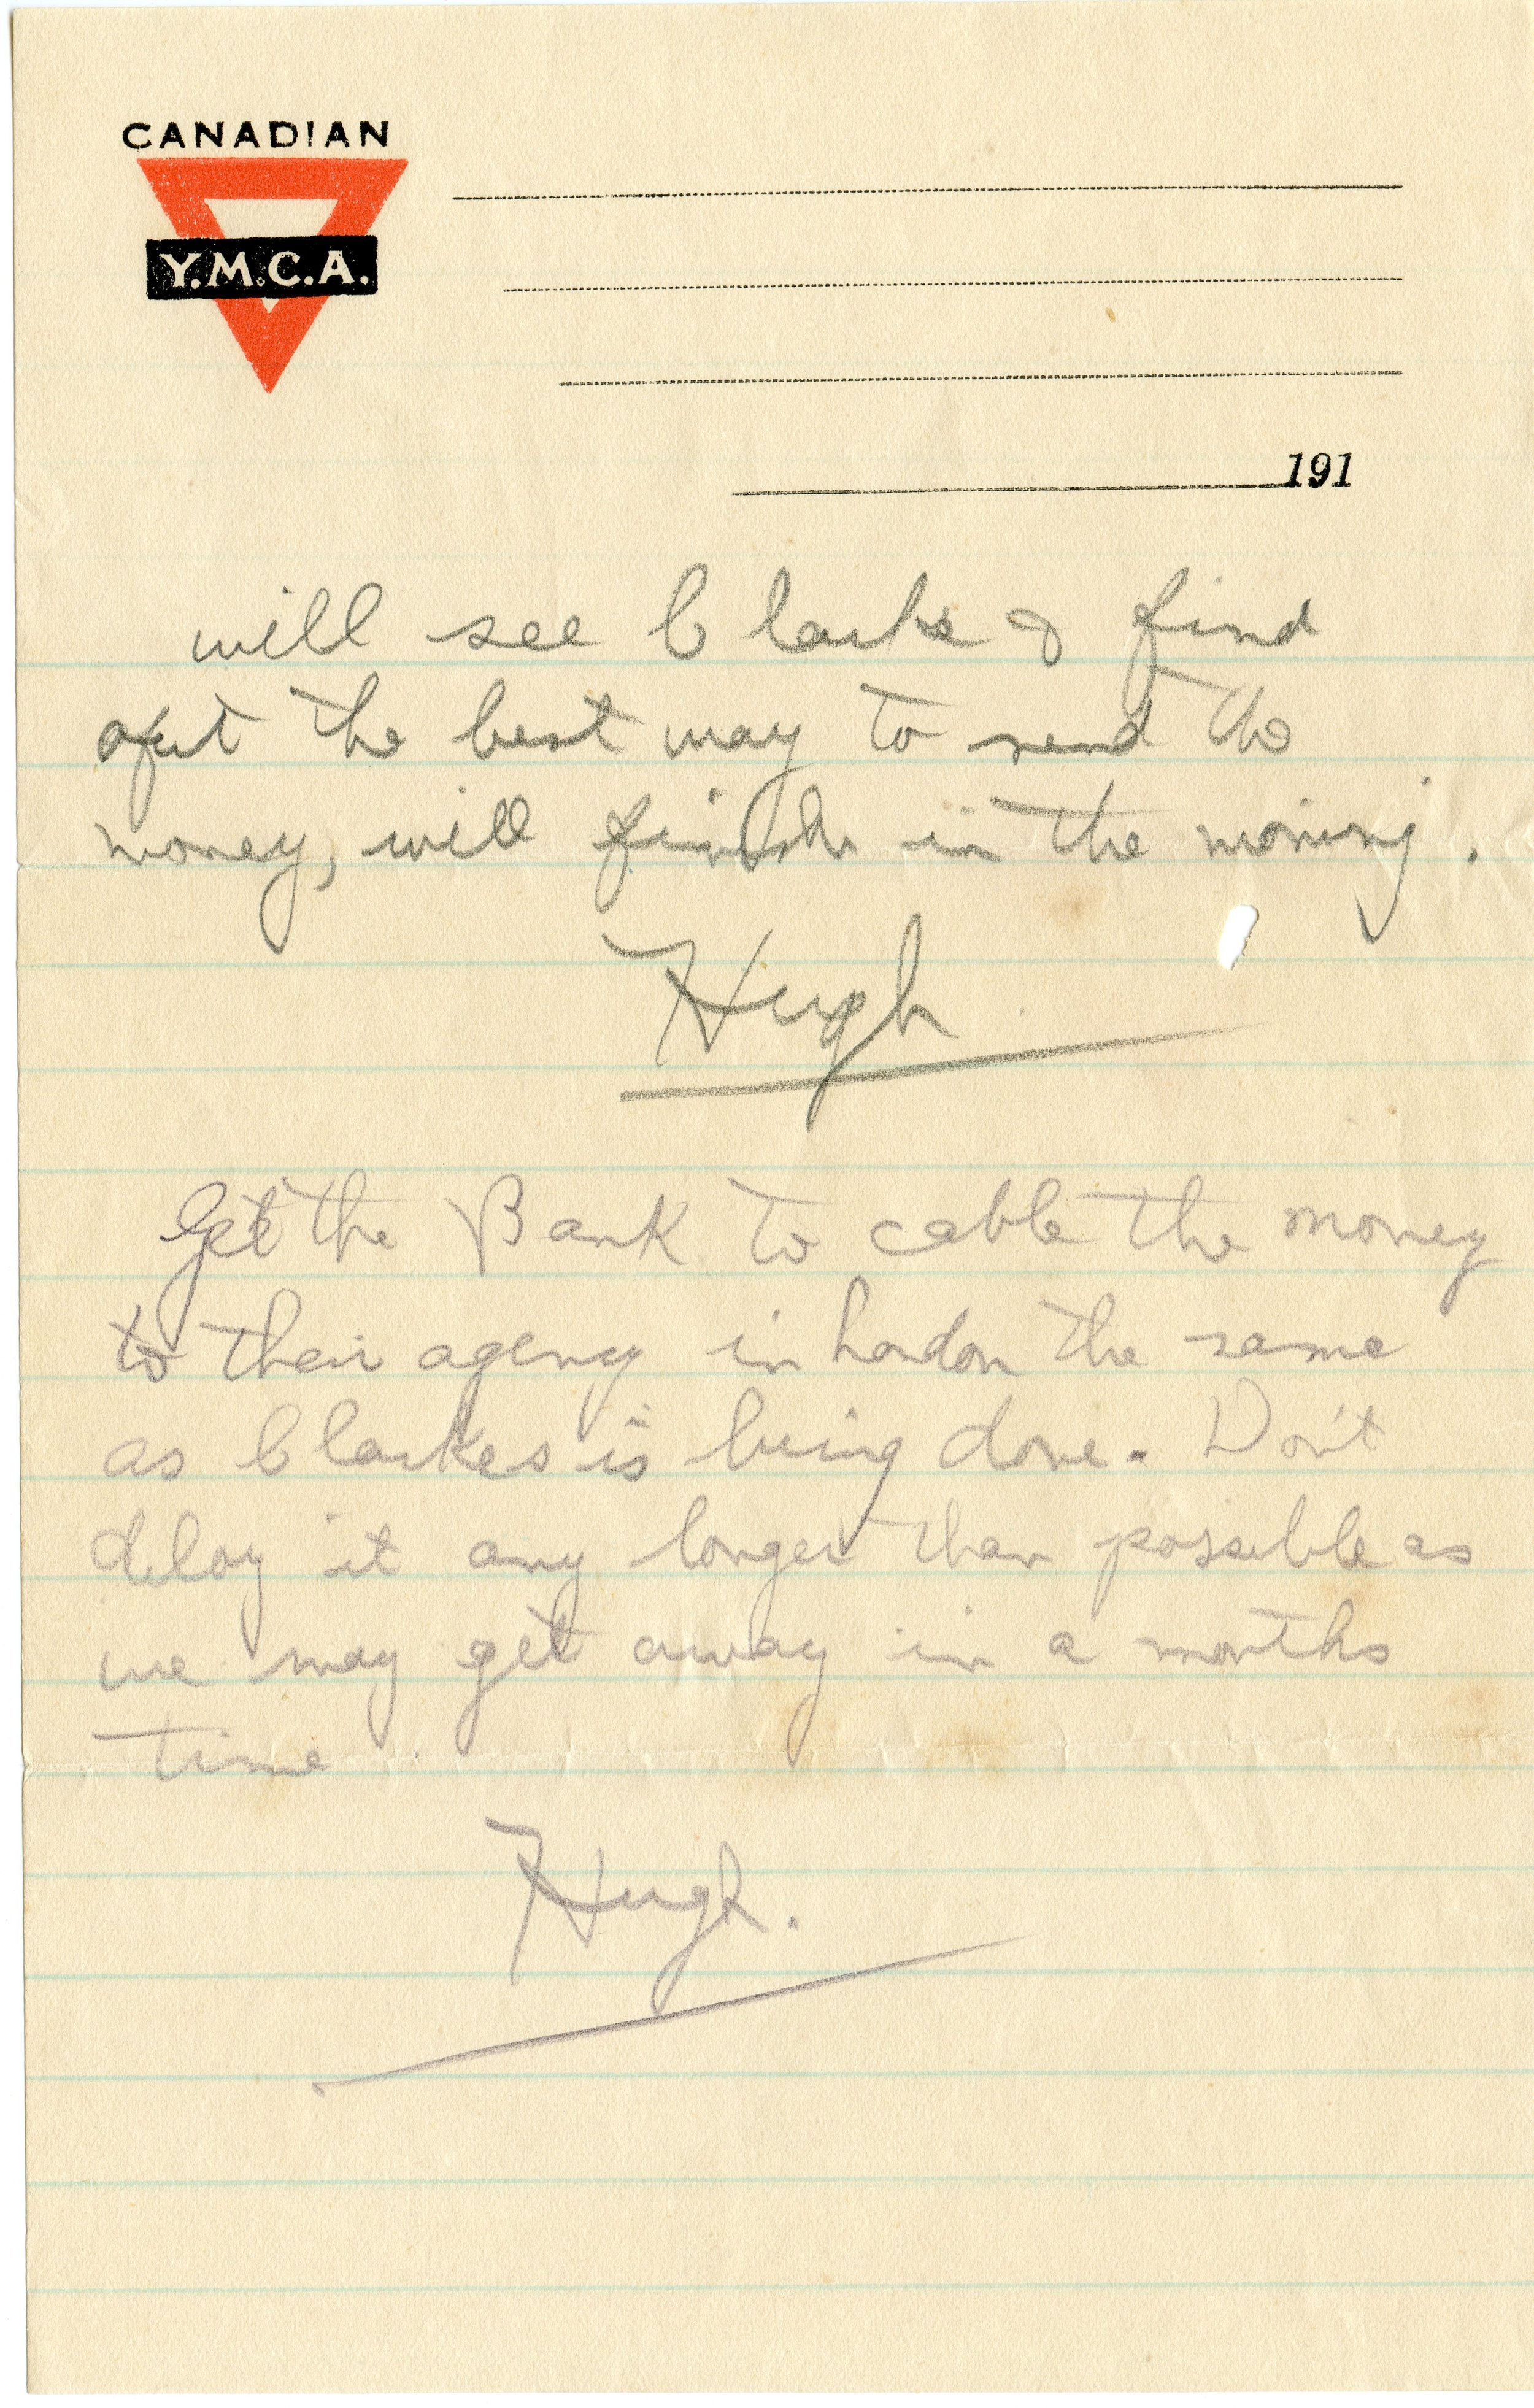 CANADIAN
Y.M.C.A.
191
will see Clarke & find
out the best way to send the
money, will finish in the morning.
Hugh
Get the Bank to cable the money
to their agency in London the same
as Clarkes is being done. Don't
delay it any longer than possible as
we may get away in a months
time.
Hugh.